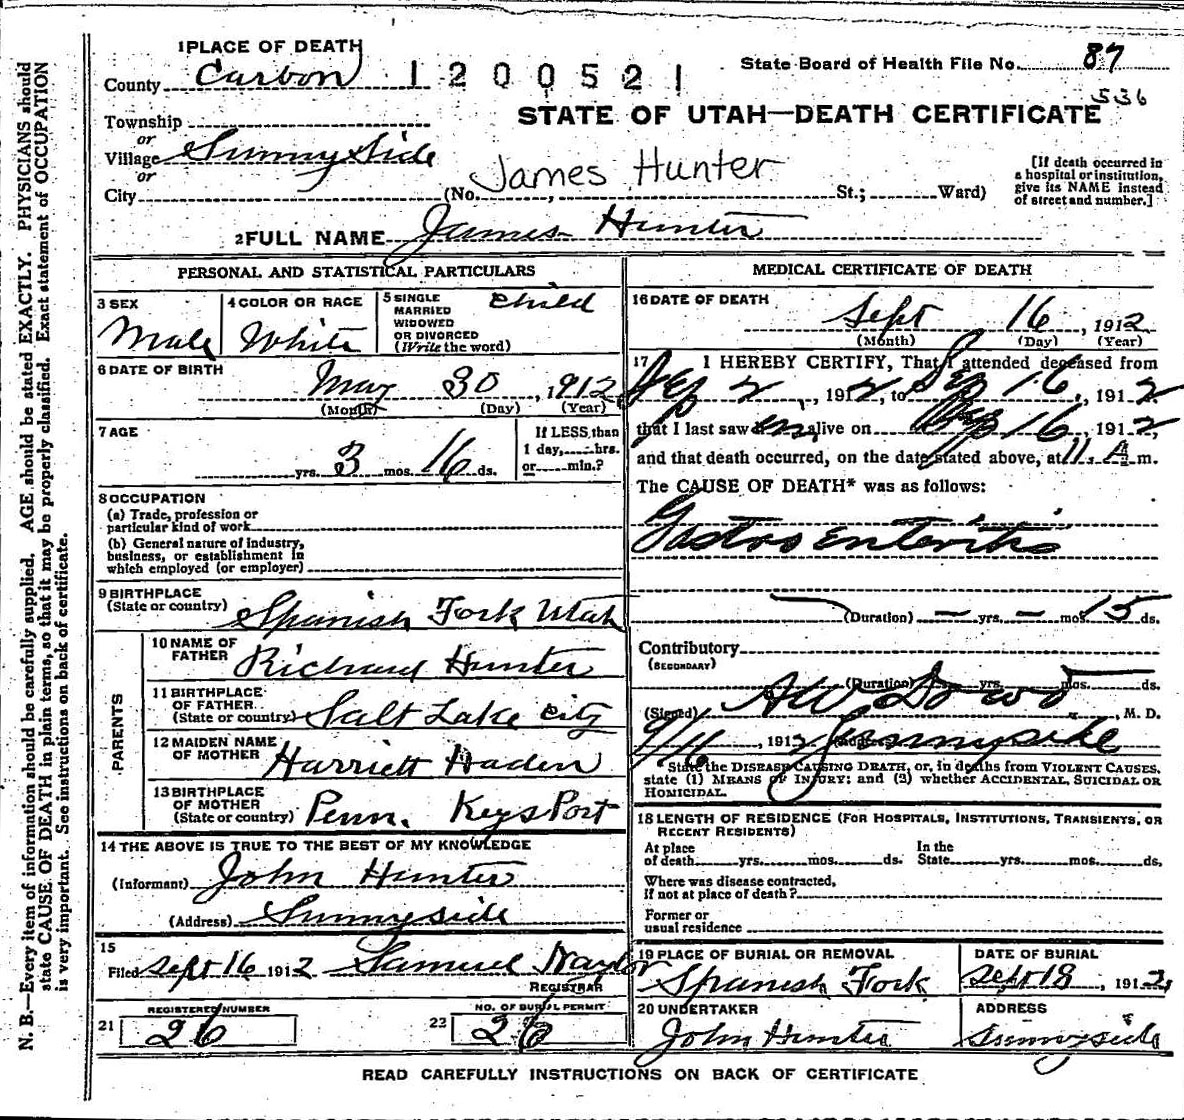 1 PLACE OF DEATH
County Carbon
1200521
State Board of Health File No. 87
536
STATE OF UTAH—DEATH CERTIFICATE
Township
or
Village Sunny Side
or
City (No. James Hunter St.; Ward)
[If death occurred in
a hospital or institution,
give its NAME instead
of street and number.]
2 FULL NAME James Hunter
PERSONAL AND STATISTICAL PARTICULARS
3 SEX
Male
4 COLOR OR RACE
White
5 SINGLE
MARRIED
WIDOWED
OR DIVORCED
(Write the word)
child
6 DATE OF BIRTH
May 30, 1912
(Month) (Day) (Year)
7 AGE
yrs. 3 mos. 16 ds.
If LESS than
1 day, hrs.
or min.?
8 OCCUPATION
(a) Trade, profession or
particular kind of work
(b) General nature of industry,
business, or establishment in
which employed (or employer)
9 BIRTHPLACE
(State or country) Spanish Fork Utah
PARENTS
10 NAME OF
FATHER Richard Hunter
11 BIRTHPLACE
OF FATHER
(State or country) Salt Lake City
12 MAIDEN NAME
OF MOTHER Harriett Haden
13 BIRTHPLACE
OF MOTHER
(State or country) Penn. Keys Port
14 THE ABOVE IS TRUE TO THE BEST OF MY KNOWLEDGE
(Informant) John Hunter
(Address) Sunnyside
15
Filed Sept 16 1912 Samuel Naylor
REGISTRAR
21 REGISTERED NUMBER
26
22 NO. OF BURIAL PERMIT
26
MEDICAL CERTIFICATE OF DEATH
16 DATE OF DEATH
Sept 16, 1912
(Month) (Day) (Year)
17 I HEREBY CERTIFY, That I attended deceased from
Sep 2, 1912, to Sep 16, 1912
that I last saw him alive on Sep 16, 1912,
and that death occurred, on the date stated above, at 11. A. m.
The CAUSE OF DEATH* was as follows:
Gastro Enteritis
(Duration) — yrs. — mos. 15 ds.
Contributory
(SECONDARY)
(Duration) yrs. mos. ds.
(Signed) AW , M. D.
9/16, 1912 (Address) Sunnyside
State the DISEASE CAUSING DEATH, or, in deaths from VIOLENT CAUSES,
state (1) MEANS OF INJURY; and (2) whether ACCIDENTAL, SUICIDAL OR
HOMICIDAL.
18 LENGTH OF RESIDENCE (FOR HOSPITALS, INSTITUTIONS, TRANSIENTS, OR
RECENT RESIDENTS)
At place
of death yrs. mos. ds.
In the
State yrs. mos. ds.
Where was disease contracted,
If not at place of death?
Former or
usual residence
19 PLACE OF BURIAL OR REMOVAL
Spanish Fork
DATE OF BURIAL
Sept 18, 1912
20 UNDERTAKER
John Hunter
ADDRESS
Sunnyside
READ CAREFULLY INSTRUCTIONS ON BACK OF CERTIFICATE
N. B.—Every item of information should be carefully supplied. AGE should be stated EXACTLY. PHYSICIANS should
state CAUSE OF DEATH in plain terms, so that it may be properly classified. Exact statement of OCCUPATION
is very important. See instructions on back of certificate.